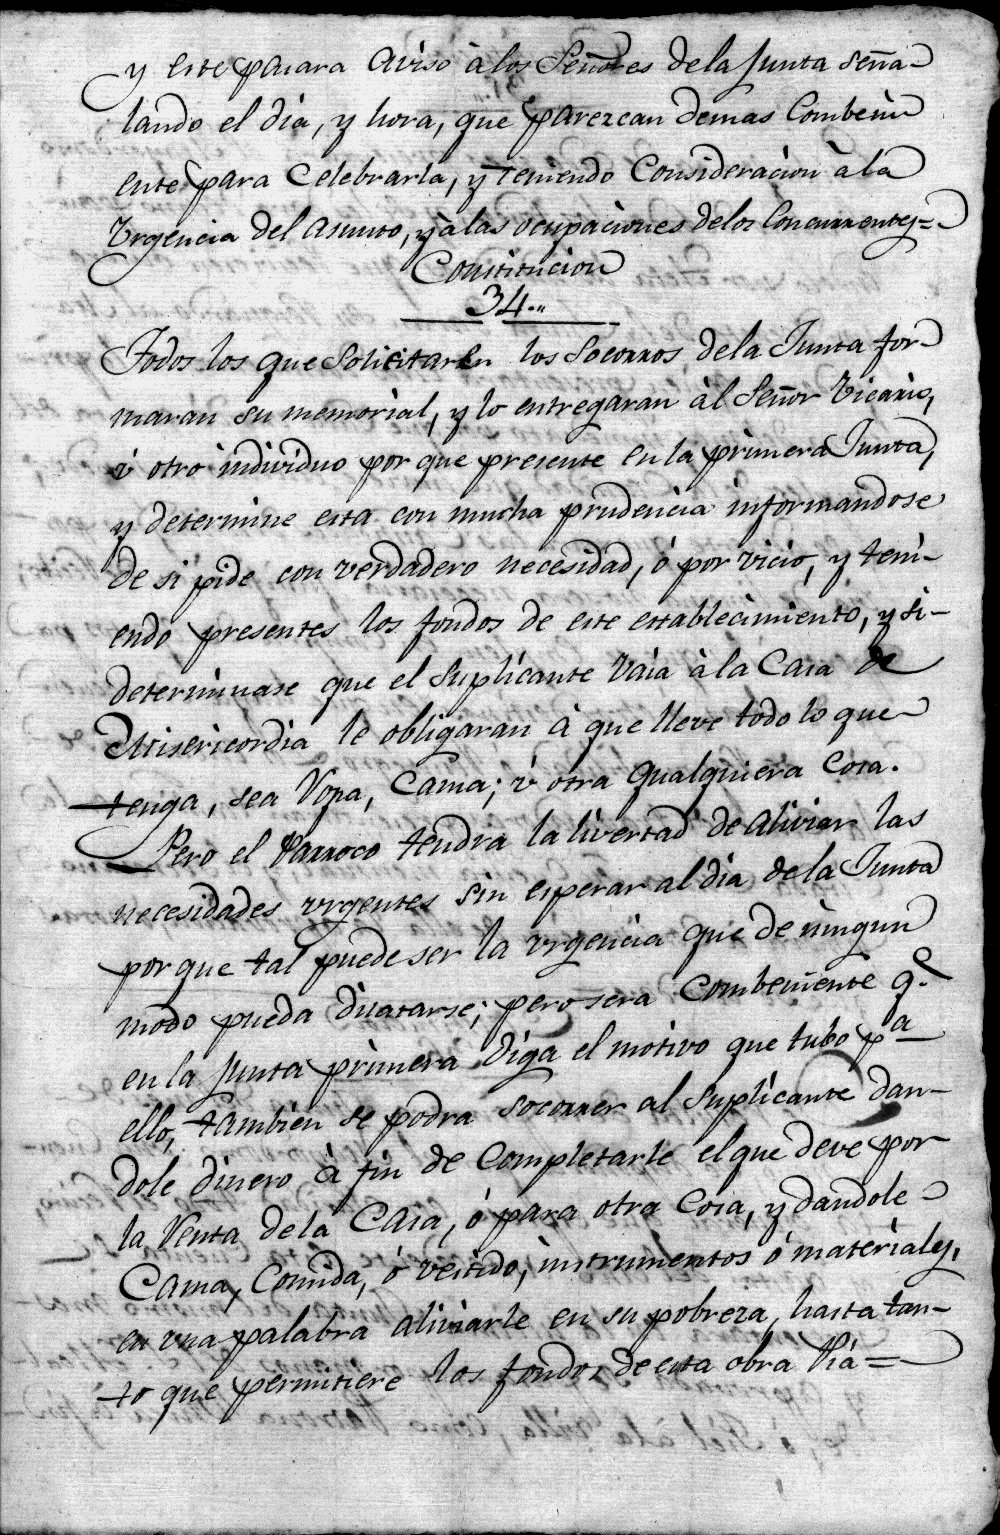 y este pasara aviso à los Señores de la Junta seña-
lando el dia, y hora, que parezcan demas Combeni
ente para Celebrarla, y teniendo Consideracion à la
Vrgencia del Asunto, y à las ocupaciones de los Concurrentes=
Constitucion
34..
Todos los que Solicitaren los Socorros de la Junta for-
maran su memorial, y lo entregaran àl Señor Vicario,
ù otro individuo por que presente en la primera Junta,
y determine esta con mucha prudencia informandose
de si pide con verdadero necesidad, ó por vicio, y teni-
endo presentes los fondos de este establecimiento, y si-
determinase que el Suplicante Vaia à la Casa de
Misericordia le obligaran à que lleve todo lo que
tenga, sea Ropa, Cama; ù otra qualquiera Cosa.
Pero el Parroco tendra la livertad de Aliviar las
necesidades vrgentes sin esperar al dia de la Junta
por que tal puede ser la vrgencia que de ningun
modo pueda dilatarse; pero sera Combeniente q.
en la Junta primera diga el motivo que tubo pª
ello, tambien se podra socorrer al Suplicante dan-
dole dinero à fin de Completarle el que deve por
la Renta de la Casa, ó para otra Cosa, y dandole
Cama, Comida, ó vestido, instrumentos ó materiales,
en vna palabra aliviarle en su pobreza, hasta tan-
to que permitiere los fondos de esta obra Pia=